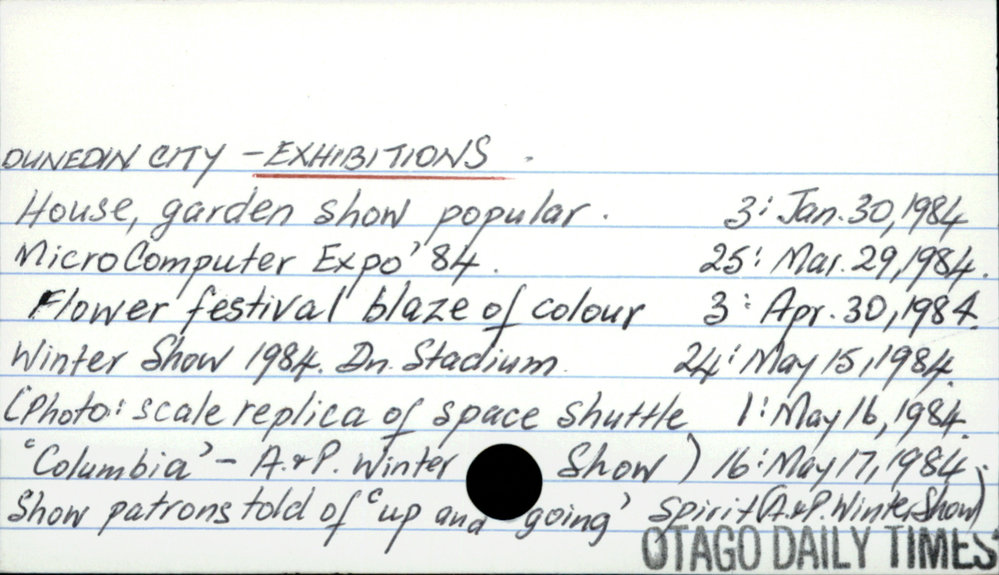 DUNEDIN CITY - EXHIBITIONS.
House, garden show popular. 3: Jan. 30, 1984
MicroComputer Expo '84. 25: Mar. 29, 1984.
Flower festival blaze of colour 3: Apr. 30, 1984.
Winter Show 1984. Dn. Stadium. 24: May 15, 1984.
(Photo: scale replica of space shuttle 1: May 16, 1984.
'Columbia' - A.&P. Winter Show) 16: May 17, 1984.
Show patrons told of 'up and going' spirit (A.&P. Winter Show)
OTAGO DAILY TIMES